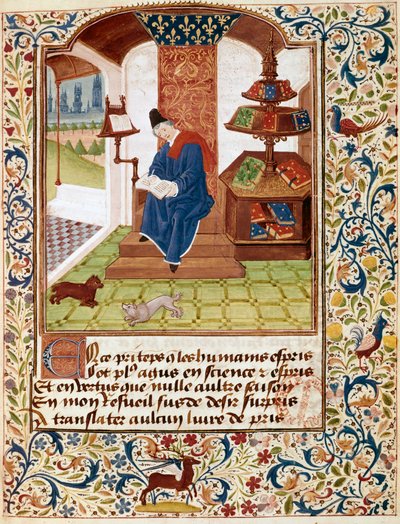 En ce pritēps q̄ les humains espris
Sōt pl⁹ agus en science & espris
Et en vertus que nulle aultre saison
En mon resueil fus de desir surpris
A translater aulcun liure de pris